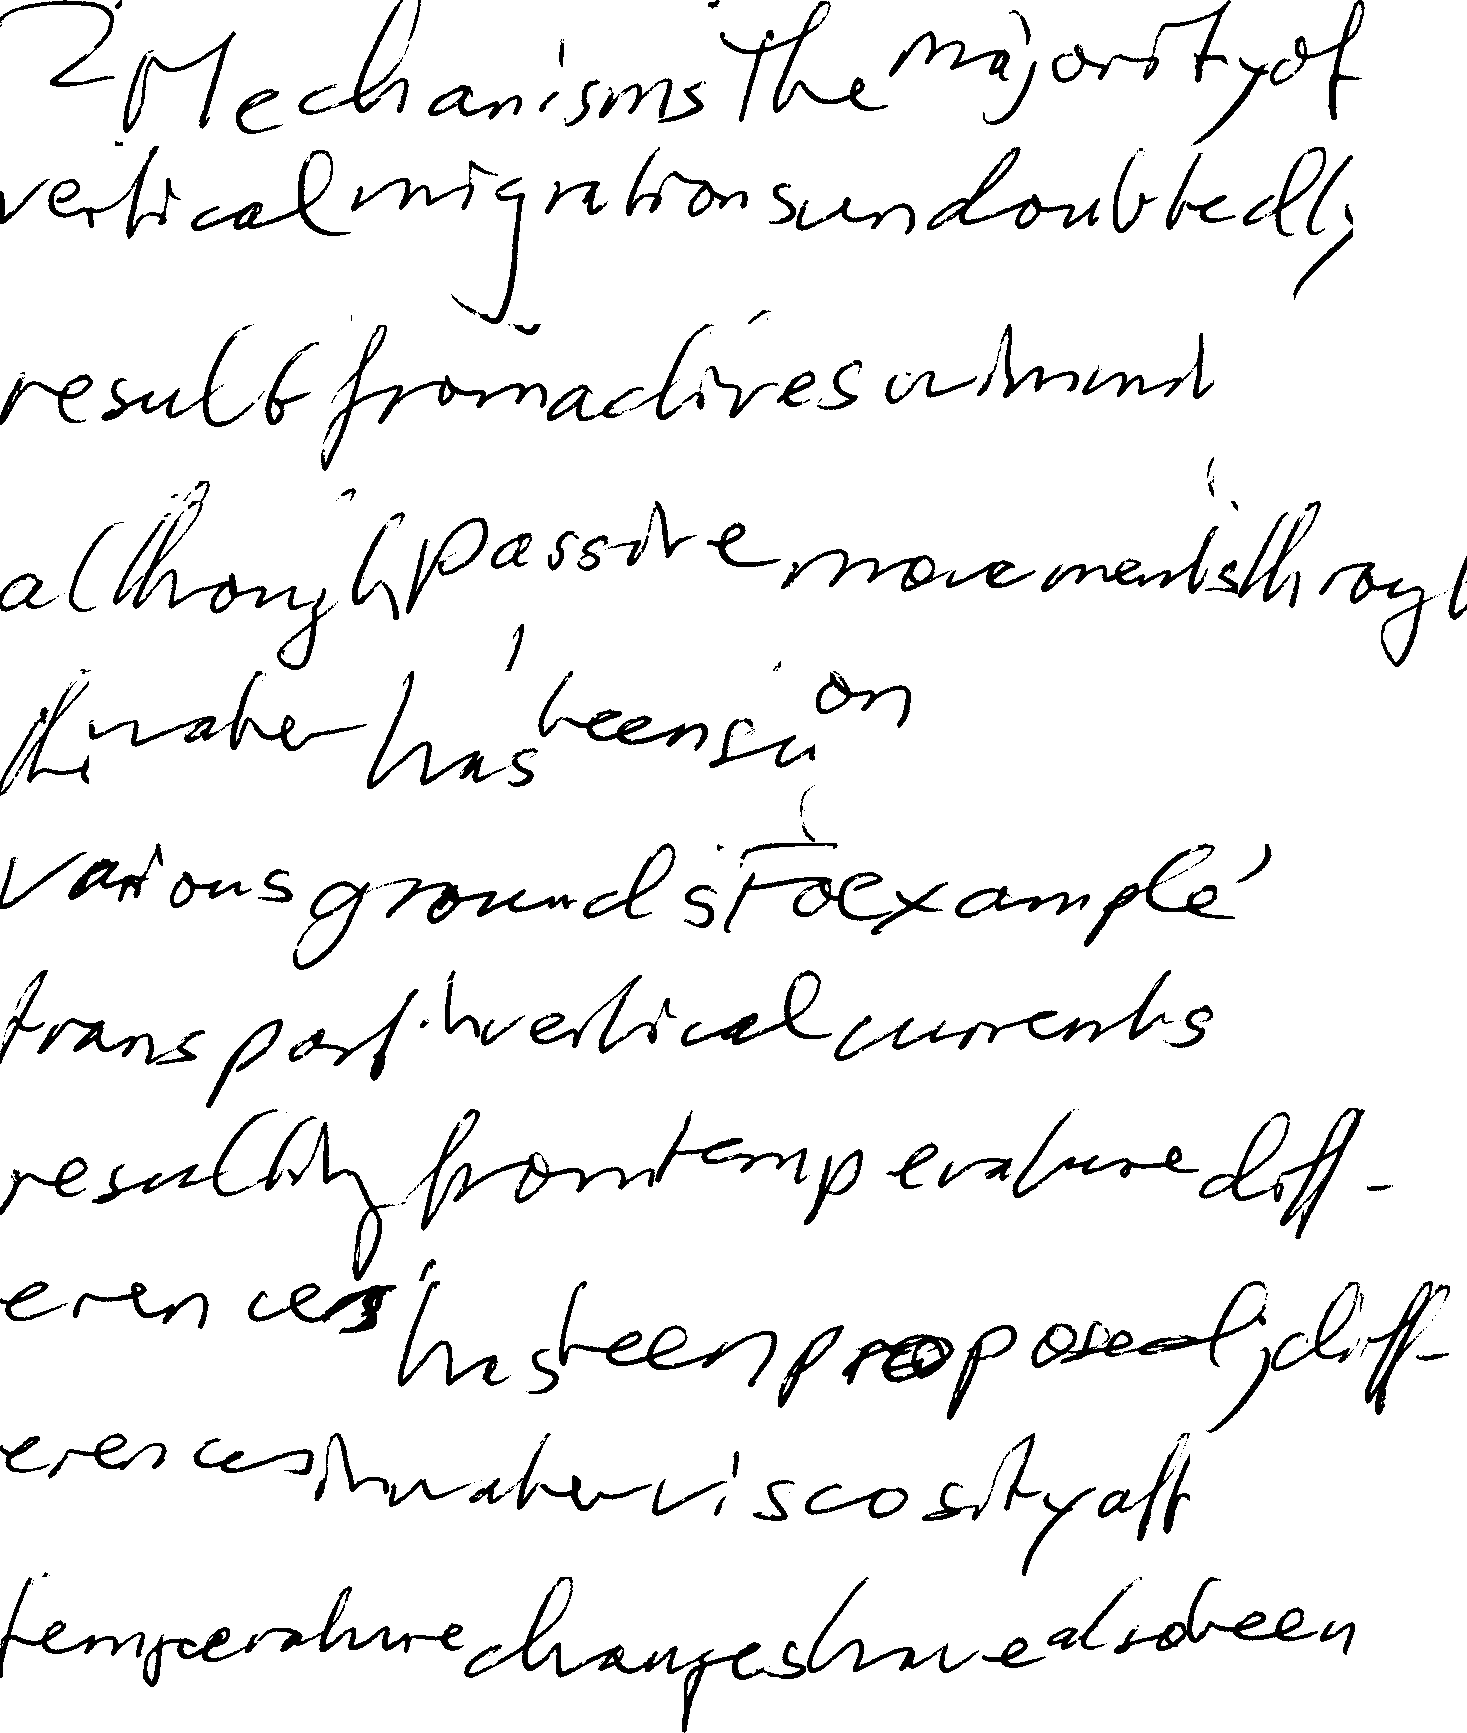 2 Mechanisms The majority of
vertical migrations undoubtedly
result from active
although passive movements through
the water has been on
various grounds For example
transport vertical currents
resulting from temperature diff-
erences has been proposed, diff-
erences in water viscosity aft
temperature changes have also been